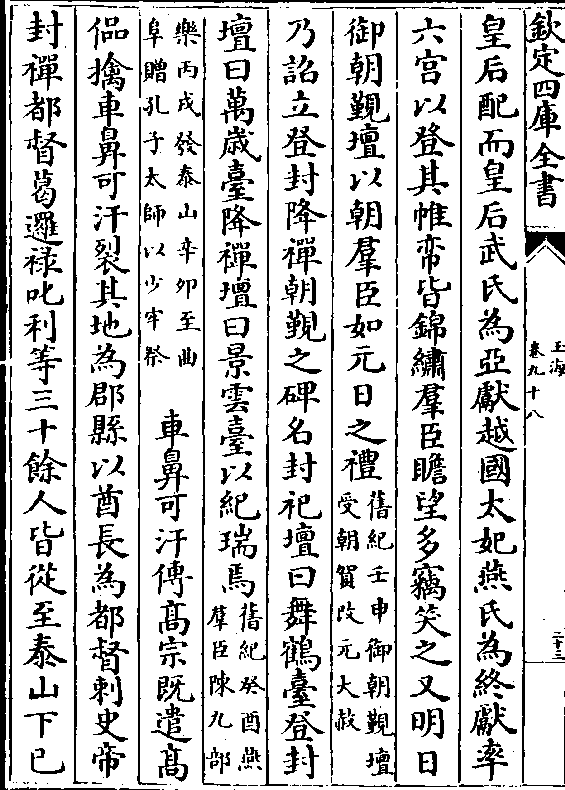 欽定四庫全書
玉海
卷九十八
二十三
皇后配而皇后武氏為亞獻越國太妃燕氏為終獻率
六宫以登其帷帟皆錦繡羣臣瞻望多竊笑之又明日
御朝覲壇以朝羣臣如元日之禮舊紀壬申御朝覲壇受朝賀改元大赦
乃詔立登封降禪朝覲之碑名封祀壇曰舞鶴臺登封
壇曰萬歲臺降禪壇曰景雲臺以紀瑞焉舊紀癸酉燕羣臣陳九部
樂丙戌發泰山辛卯至曲阜贈孔子太師以少牢祭 車鼻可汗傳髙宗既遣髙
偘擒車鼻可汗裂其地為郡縣以酋長為都督刺史帝
封禪都督葛邏禄叱利等三十餘人皆從至泰山下已